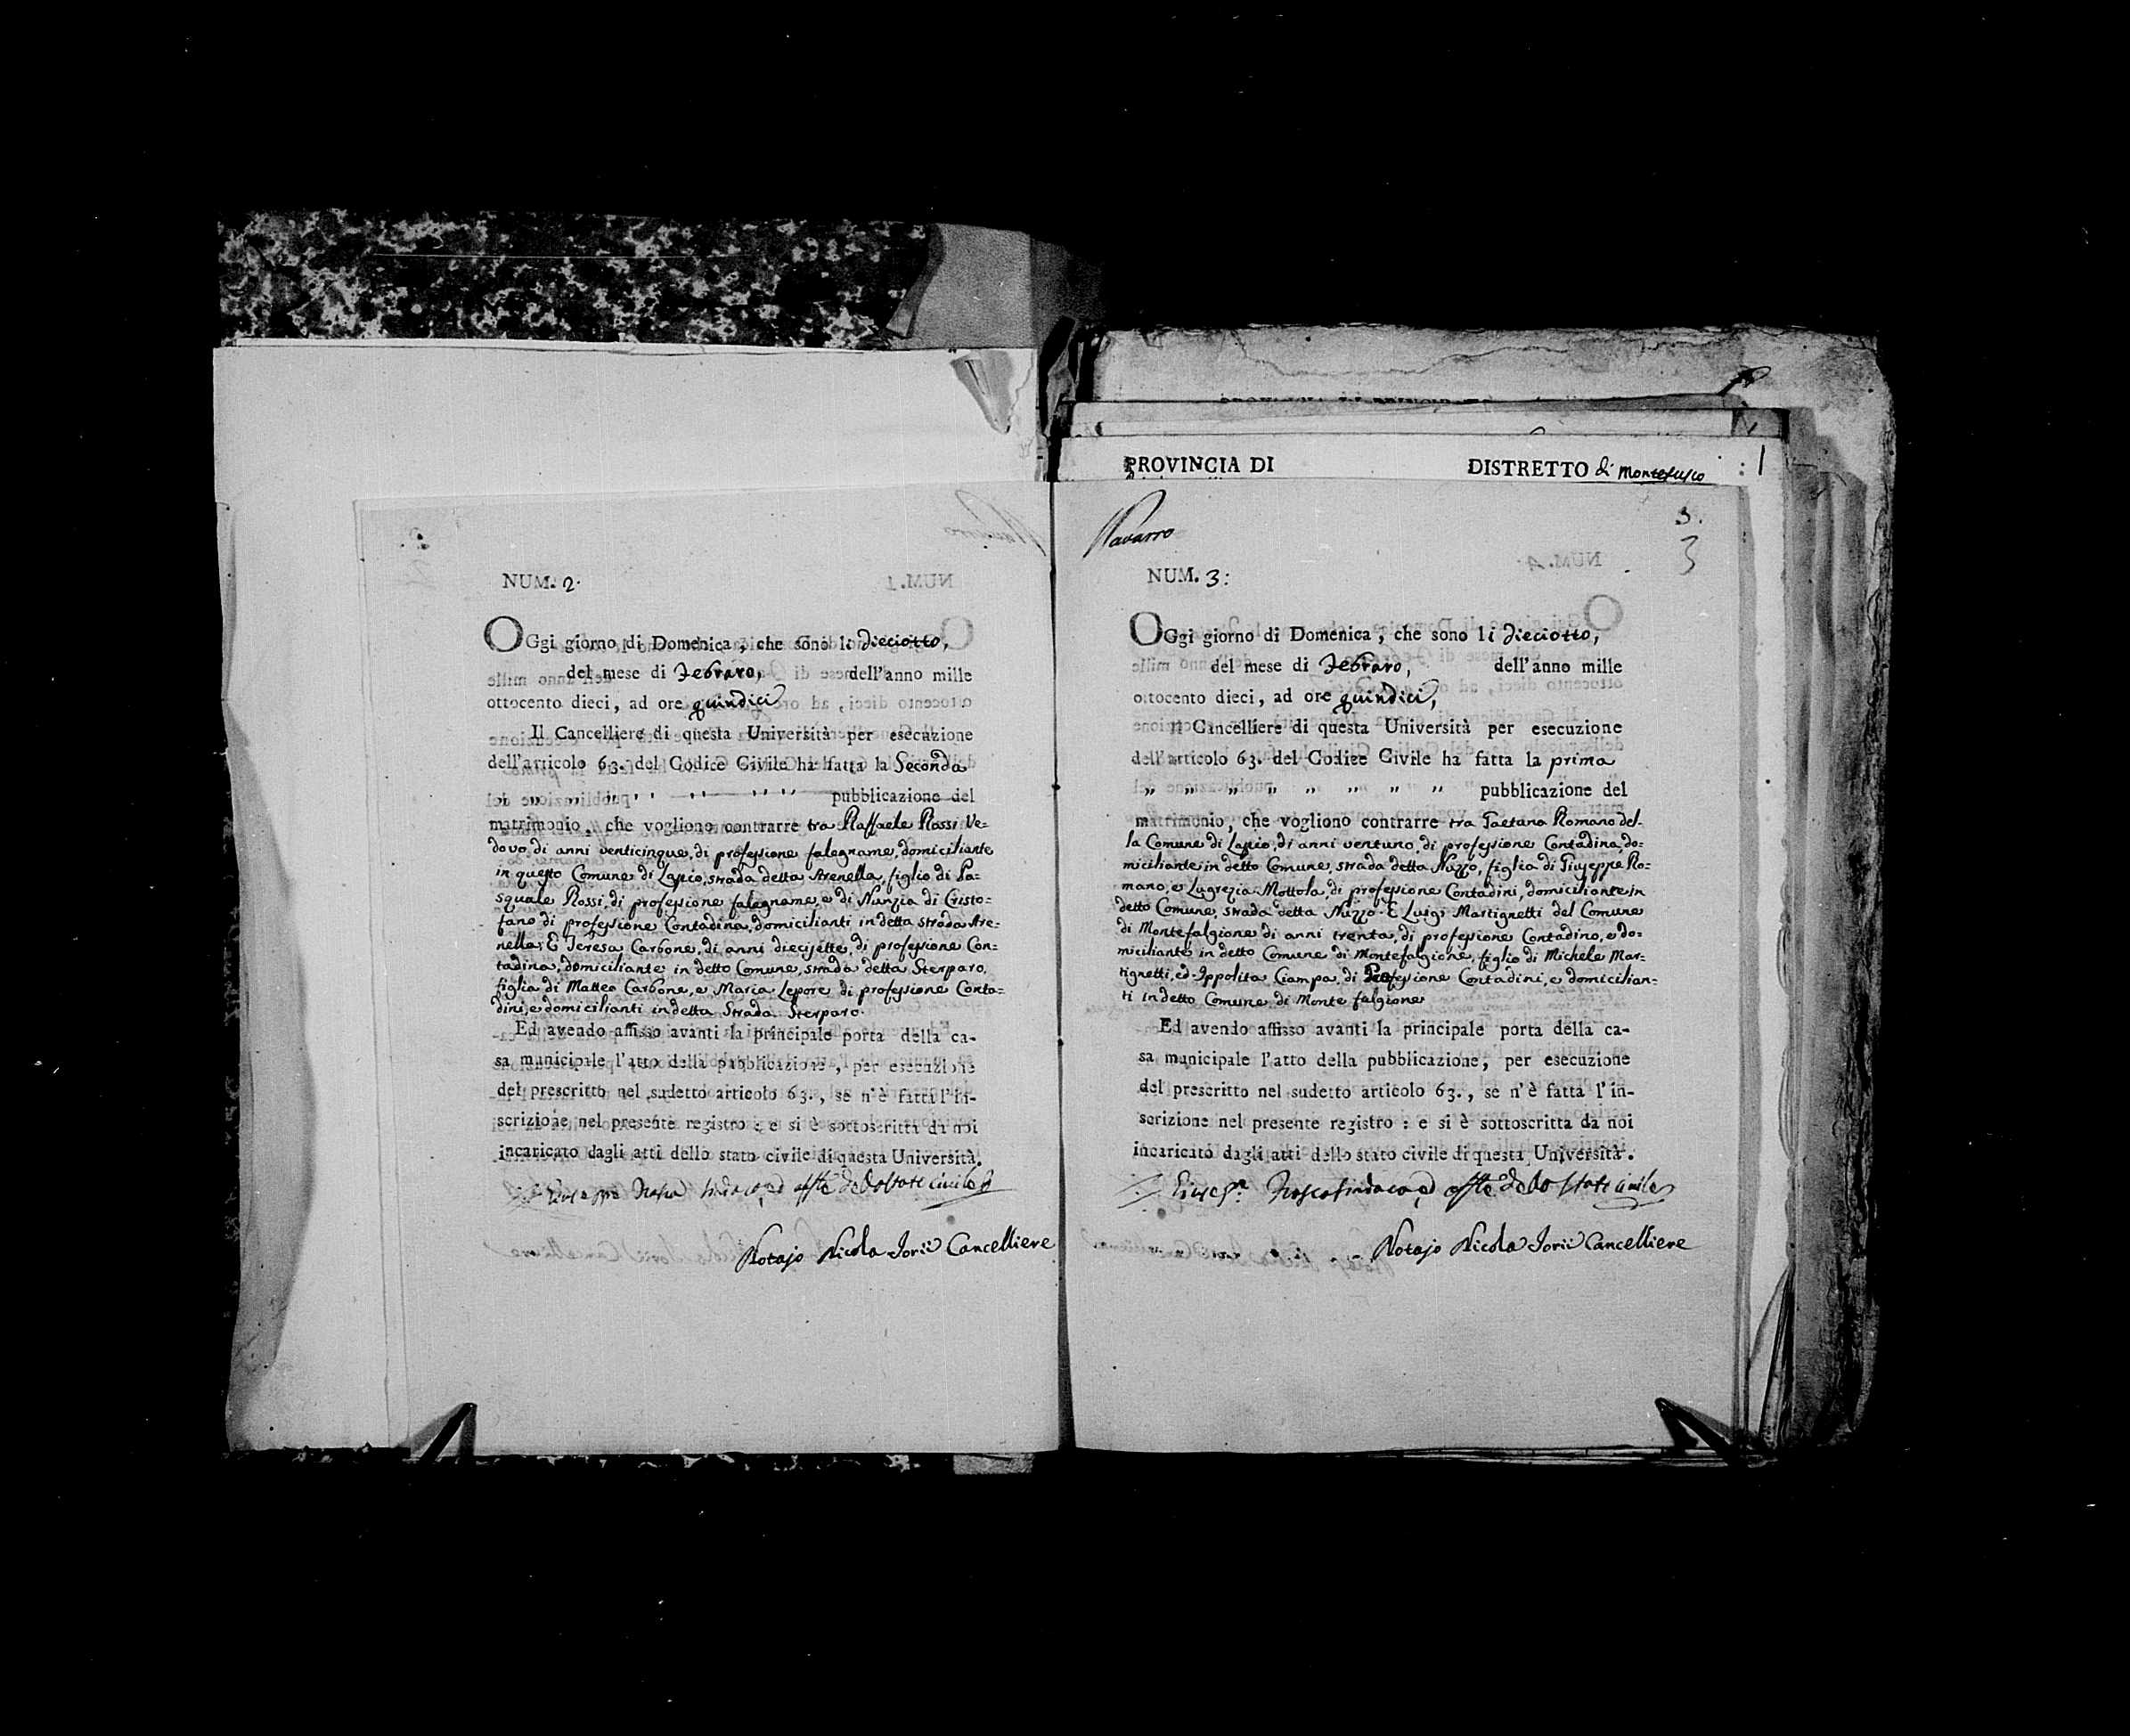 NUM. 2.
OGgi giorno di Domenica, che sono li dieciotto,
del mese di Febraro, dell'anno mille
ottocento dieci, ad ore quindici
Il Cancelliere di questa Università per esecuzione
dell'articolo 63. del Codice Civile ha fatta la Seconda
pubblicazione del
matrimonio, che vogliono contrarre tra Raffaele Rossi Ve=
dovo di anni venticinque, di professione falegname, domiciliante
in questo Comune di Lapio, strada detta Arenella, figlio di Pa=
squale Rossi, di professione falegname, e di Nunzia di Cristo=
fano di professione Contadina, domicilianti in detta strada Are=
nella. E Teresa Carbone, di anni diecisette, di professione Con=
tadina, domiciliante in detto Comune, strada detta Sterparo,
figlia di Matteo Carbone, e Maria Lepore di professione Conta=
dini, e domicilianti in detta Strada Sterparo.
Ed avendo affisso avanti la principale porta della ca-
sa municipale l'atto della pubblicazione, per esecuzione
del prescritto nel sudetto articolo 63., se n'è fatta l'in-
scrizione nel presente registro : e si è sottoscritta da noi
incaricato dagli atti dello stato civile di questa Università.
Sindaco, ed offle dello Stato Civile
Notajo Nicola Jorii Cancelliere
PROVINCIA DI DISTRETTO di Montefusco : 1
Navarro
3.
3
NUM. 3:
OGgi giorno di Domenica, che sono li dieciotto,
del mese di Febraro, dell'anno mille
ottocento dieci, ad ore quindici,
Il Cancelliere di questa Università per esecuzione
dell'articolo 63. del Codice Civile ha fatta la prima
" " " " " " " " pubblicazione del
matrimonio, che vogliono contrarre tra Gaetana Romano del-
la Comune di Lapio, di anni ventuno, di professione Contadina, do=
miciliante in detto Comune, strada detta Nuzzo, figlia di Giuseppe Ro=
mano, e Lugrezia Mottola, di professione Contadini, domiciliante in
detto Comune, strada detta Nuzzo. E Luigi Martignetti del Comune
di Montefalgione di anni trenta, di professione Contadino, e do=
miciliante in detto Comune di Montefalgione, figlio di Michele Mar=
tignetti, ed Ippolita Ciampa, di Professione Contadini, e domicilian=
ti in detto Comune di Monte falgione
Ed avendo affisso avanti la principale porta della ca-
sa municipale l'atto della pubblicazione, per esecuzione
del prescritto nel sudetto articolo 63., se n'è fatta l'in-
scrizione nel presente registro : e si è sottoscritta da noi
incaricato dagli atti dello stato civile di questa Università.
Sindaco, ed offle dello Stato Civile
Notajo Nicola Jorii Cancelliere